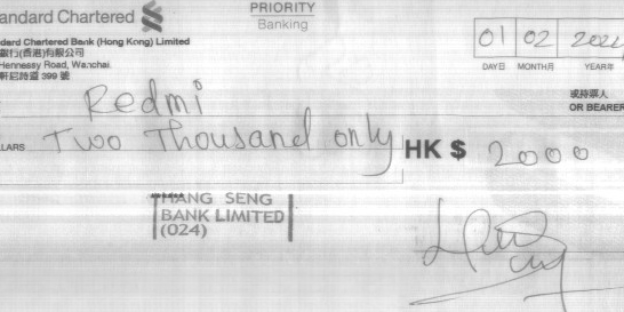 andard Chartered
PRIORITY
Banking
dard Chartered Bank (Hong Kong) Limited
銀行(香港)有限公司
Hennessy Road, Wanchai
軒尼詩道 399 號
01 02
DAY日 MONTH月 YEAR年
Redmi
或持票人
OR BEARER
LARS Two Thousand only HK $ 2000
HANG SENG
BANK LIMITED
(024)